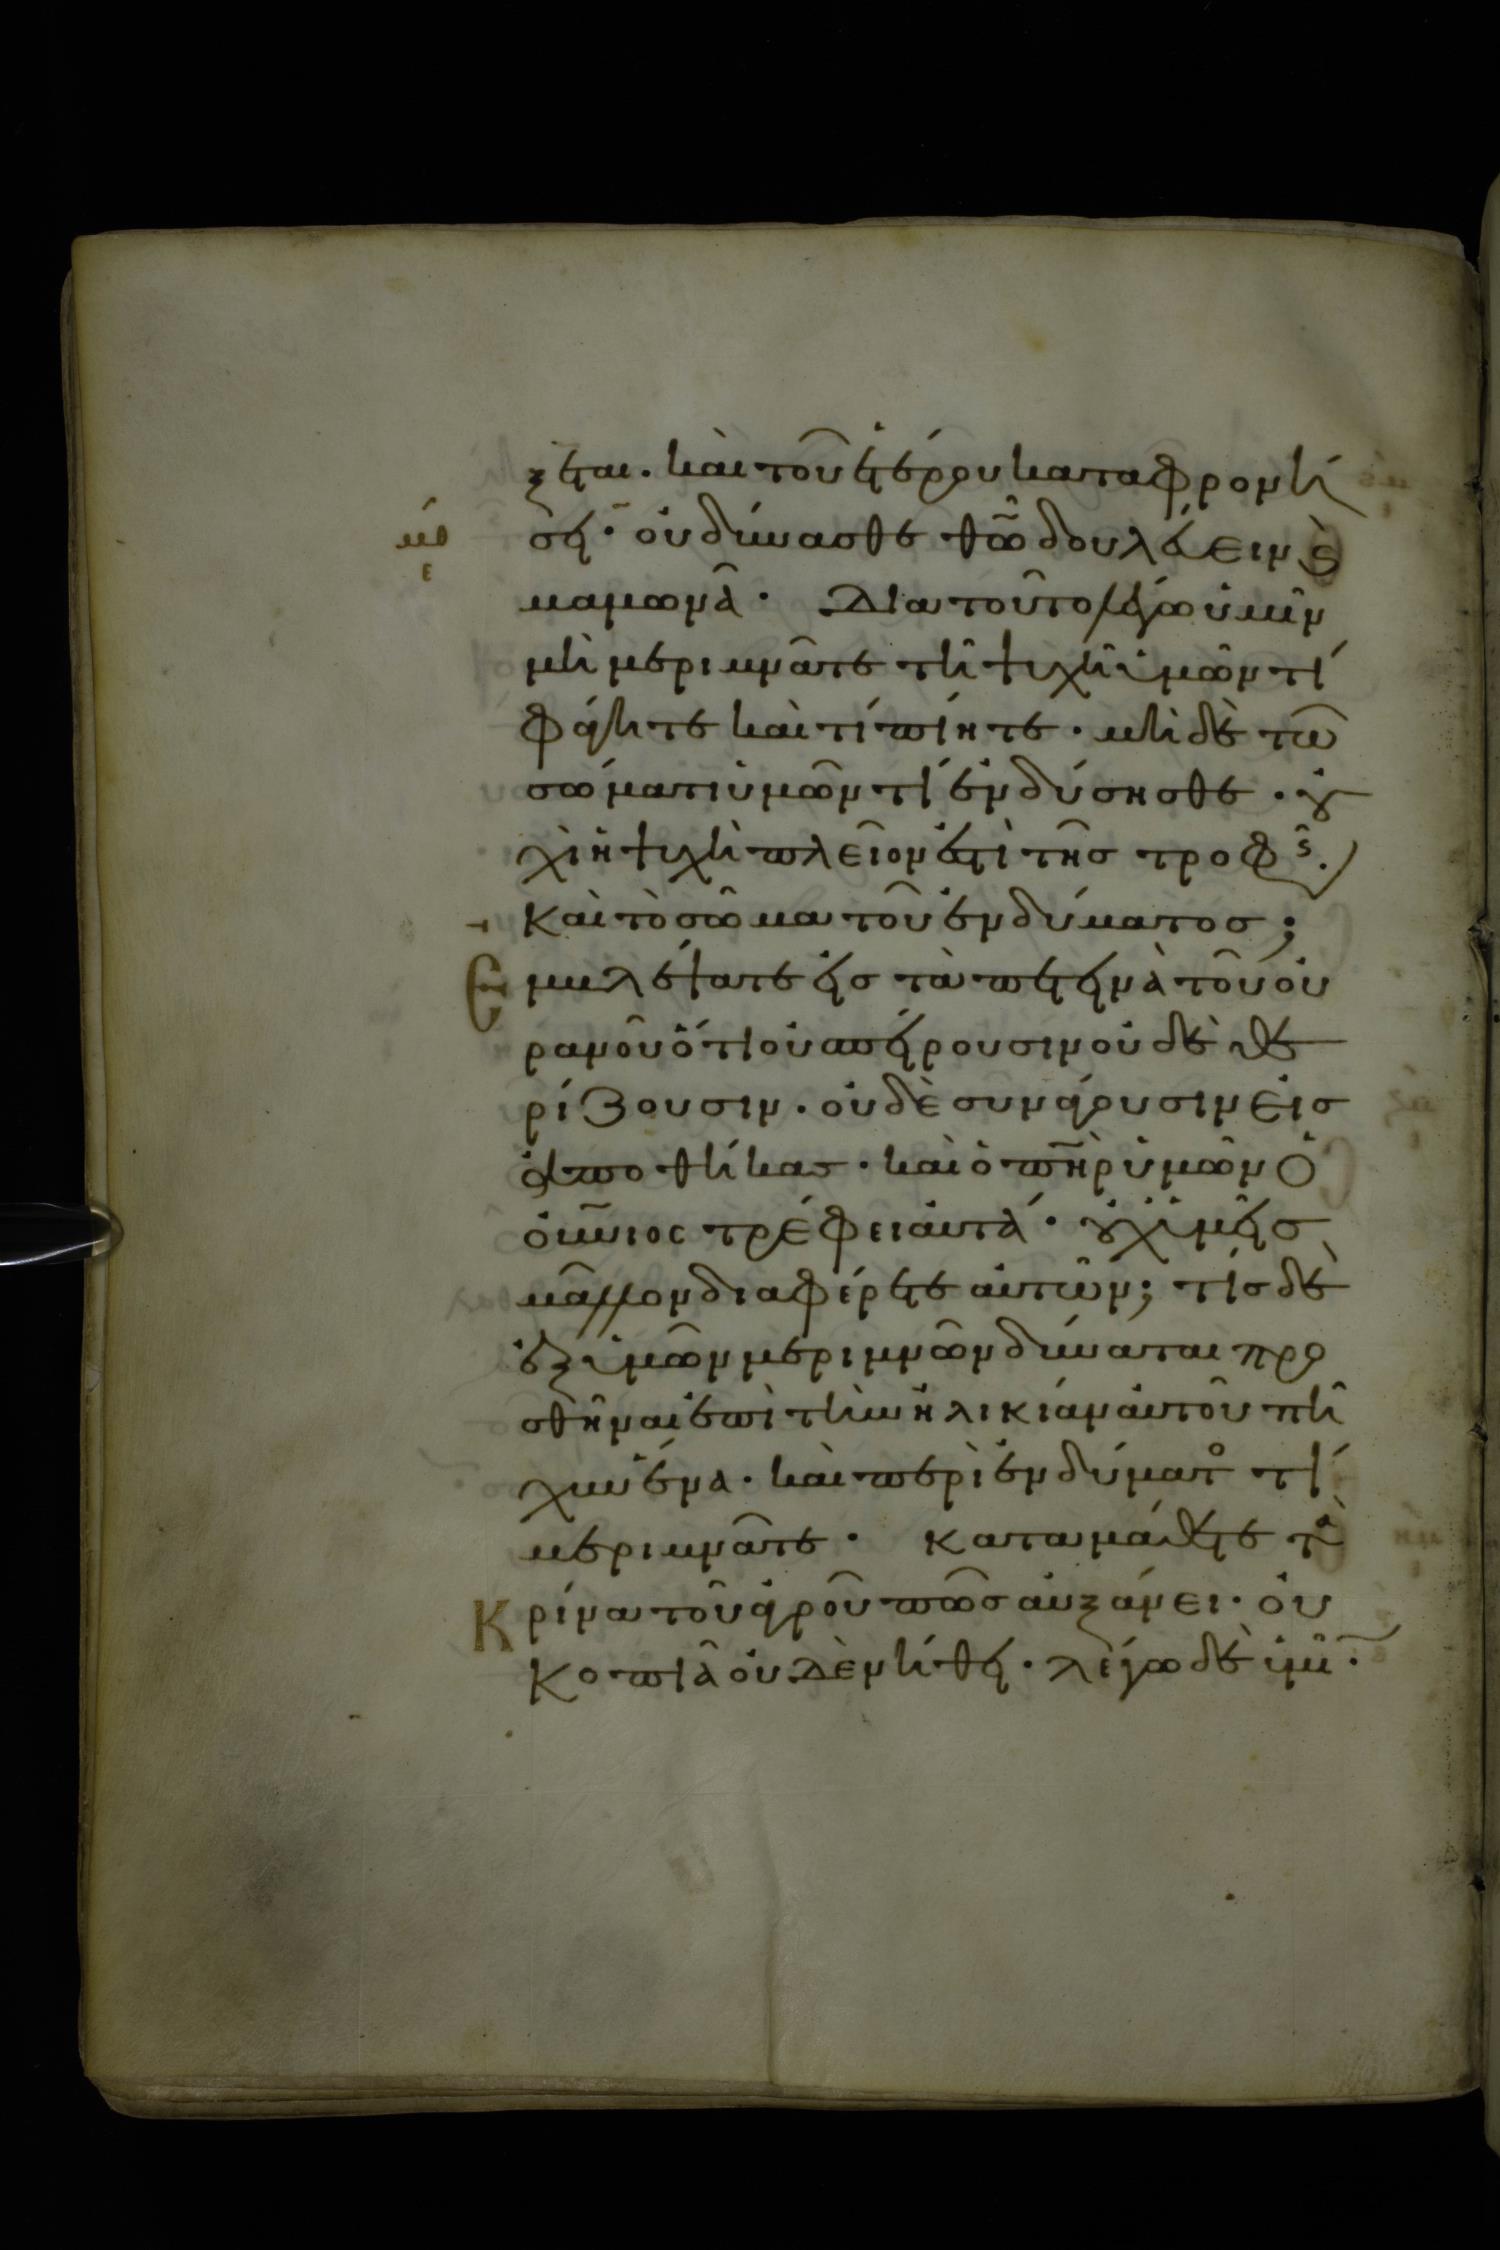 ξεται. καὶ τοῦ ἑτέρου καταφρονή
σει· οὐ δύνασθε θῶ δουλεύειν ϗ
μθ
ε
μαμωνᾶ· Διατοῦτο λέγω ὑμῖν
μὴ μεριμνᾶτε τῆ ψυχῆ ὑμῶν τί
φάγητε καὶ τί πίητε· μὴ δὲ τῶ
σώματι ὑμῶν τί ἐνδύσησθε· οὐ
χὶ ἡ ψυχὴ πλεῖον ἐστὶ τῆς τροφῆς.
Καὶ τὸ σῶμα τοῦ ἐνδύματος;
Ἐμβλέψατε εἰς τὰ πετεινὰ τοῦ οὐ
ρανοῦ ὅτι οὐ σπείρουσιν οὐδὲ θε
ρίζουσιν· οὐδὲ συνάγουσιν εἰς
ἀποθήκας· καὶ ὁ πηρ ὑμῶν ὁ
οὐνιος τρέφει αὐτά· οὐχ ὑμεῖς
μᾶλλον διαφέρετε αὐτῶν; τίς δὲ
ἐξ ὑμῶν μεριμνῶν δύναται προ
σθῆναι ἐπὶ τὴν ἡλικίαν αὐτοῦ πῆ
χυν ἕνα· καὶ περὶ ἐνδύματο τί
μεριμνᾶτε· Καταμάθετε τὰ
Κρίνα τοῦ ἀγροῦ πῶς αὐξάνει· οὐ
Κοπιᾶ οὐδὲ νήθει· λέγω δὲ ὑμῖ·